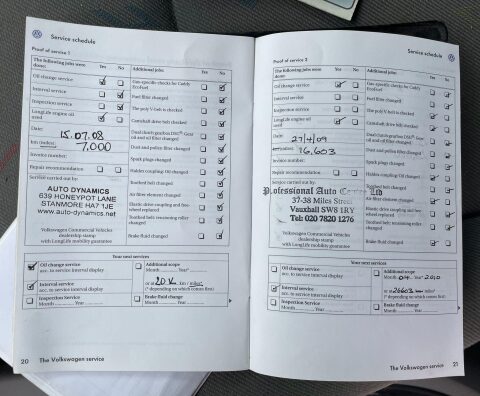 Service schedule
Proof of service 1
The following jobs were done: Yes No
Oil change service
Interval service
Inspection service
LongLife engine oil used
Date: 15.07.08
km (miles): 7,000
Invoice number:
Repair recommendation
Service carried out by:
AUTO DYNAMICS
639 HONEYPOT LANE
STANMORE HA7 1JE
www.auto-dynamics.net
Volkswagen Commercial Vehicles
dealership stamp
with LongLife mobility guarantee
Additional jobs: Yes No
Gas-specific checks for Caddy EcoFuel
Fuel filter changed
The poly V-belt is checked
Camshaft drive belt checked
Dual clutch gearbox DSG® Gear oil and oil filter changed
Dust and pollen filter changed
Spark plugs changed
Haldex coupling: Oil changed
Toothed belt changed
Air filter element changed
Elastic drive coupling and free-wheel replaced
Toothed belt tensioning roller changed
Brake fluid changed
Your next services
Oil change service
acc. to service interval display
Interval service
acc. to service interval display
Inspection Service
Month Year
Additional scope
Month Year*
or at 20 K km / miles*
(* depending on which comes first)
Brake fluid change
Month Year
20 The Volkswagen service
Service schedule
Proof of service 2
The following jobs were done: Yes No
Oil change service
Interval service
Inspection service
LongLife engine oil used
Date: 27/4/09
km (miles): 16,603
Invoice number:
Repair recommendation
Service carried out by:
Professional Auto Centre Ltd
37-38 Miles Street
Vauxhall SW8 1RY
Tel: 020 7820 1276
Volkswagen Commercial Vehicles
dealership stamp
with LongLife mobility guarantee
Additional jobs: Yes No
Gas-specific checks for Caddy EcoFuel
Fuel filter changed
The poly V-belt is checked
Camshaft drive belt checked
Dual clutch gearbox DSG® Gear oil and oil filter changed
Dust and pollen filter changed
Spark plugs changed
Haldex coupling: Oil changed
Toothed belt changed
Air filter element changed
Elastic drive coupling and free-wheel replaced
Toothed belt tensioning roller changed
Brake fluid changed
Your next services
Oil change service
acc. to service interval display
Interval service
acc. to service interval display
Inspection Service
Month Year
Additional scope
Month Year* 2010
or at 26603 km / miles*
(* depending on which comes first)
Brake fluid change
Month Year
The Volkswagen service 21